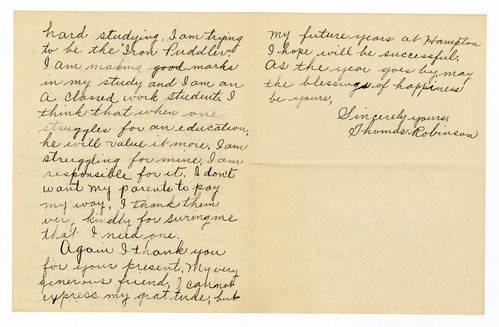 hard studying. I am trying
to be the "Iron Puddler"
I am making good marks
in my study and I am an
A classed work student. I
think that when one
struggles for an education,
he will value it more. I am
strуggling for mine, I am
responsible for it. I don't
want my parents to pay
my way. I thank them
ver, kindly for suring me
that I need one.
Again I thank you
for your present. My very
generous friend, I cannot
express my gratitude, but
my future years at Hampton
I hope will be successful.
As the year goes by, may
the blessings of happiness
be yours,
Sincerely yours,
Thomas Robinson